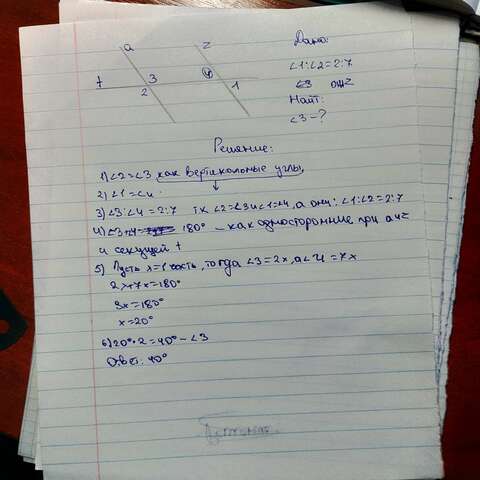 a
z
t
3
2
4
1
Дано:
∠1:∠2=2:7
∠3 a||z
Найт:
∠3-?
Решение:
1)∠2=∠3 как вертикальные углы,
2)∠1=∠4.
3)∠3:∠4=2:7 тк ∠2=∠3 и ∠1=∠4, а они: ∠1:∠2=2:7
4)∠3+4= 180° - как односторонние при a и z
и секущей t
5) Пусть x=1 часть, тогда ∠3=2x, а ∠4=7x
2x+7x=180°
9x=180°
x=20°
6)20°·2=40°-∠3
Ответ: 40°